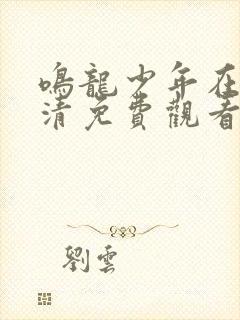 鳴龍少年在
清免費觀看
劉雲